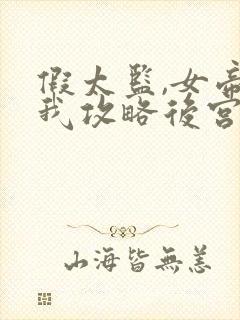 假太監,女帝
我攻略後宮
山海皆無恙